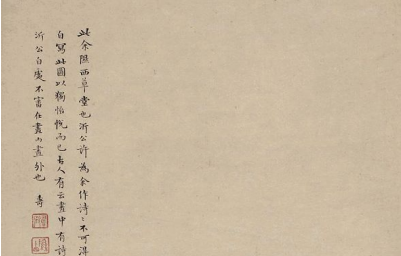 此余隰西草堂也沂公許為余作詩〻不可得
自寫此圖以獨怡悅而已古人有云畫中有詩
沂公自處不審在畫內畫外也 壽